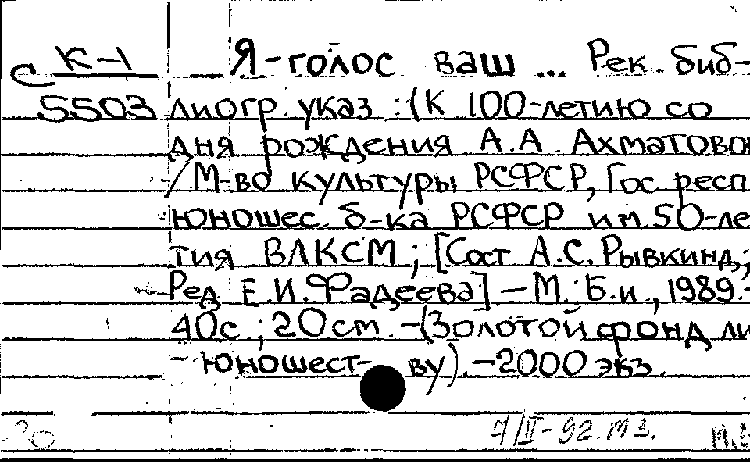 С К-1 Я-голос ваш ... Рек. биб-
5503 лиогр. указ : (К 100-летию со
дня рождения А.А Ахматовой
/ М-во культуры РСФСР, Гос респ
юношес. б-ка РСФСР им. 50-ле
тия ВЛКСМ ; [Сост А.С. Рывкинд,;
Ред Е.И. Фадеева] - М.: Б.и., 1989.-
40с.; 20см. -(Золотой фонд ли
- юношест- ву). -2000 экз.